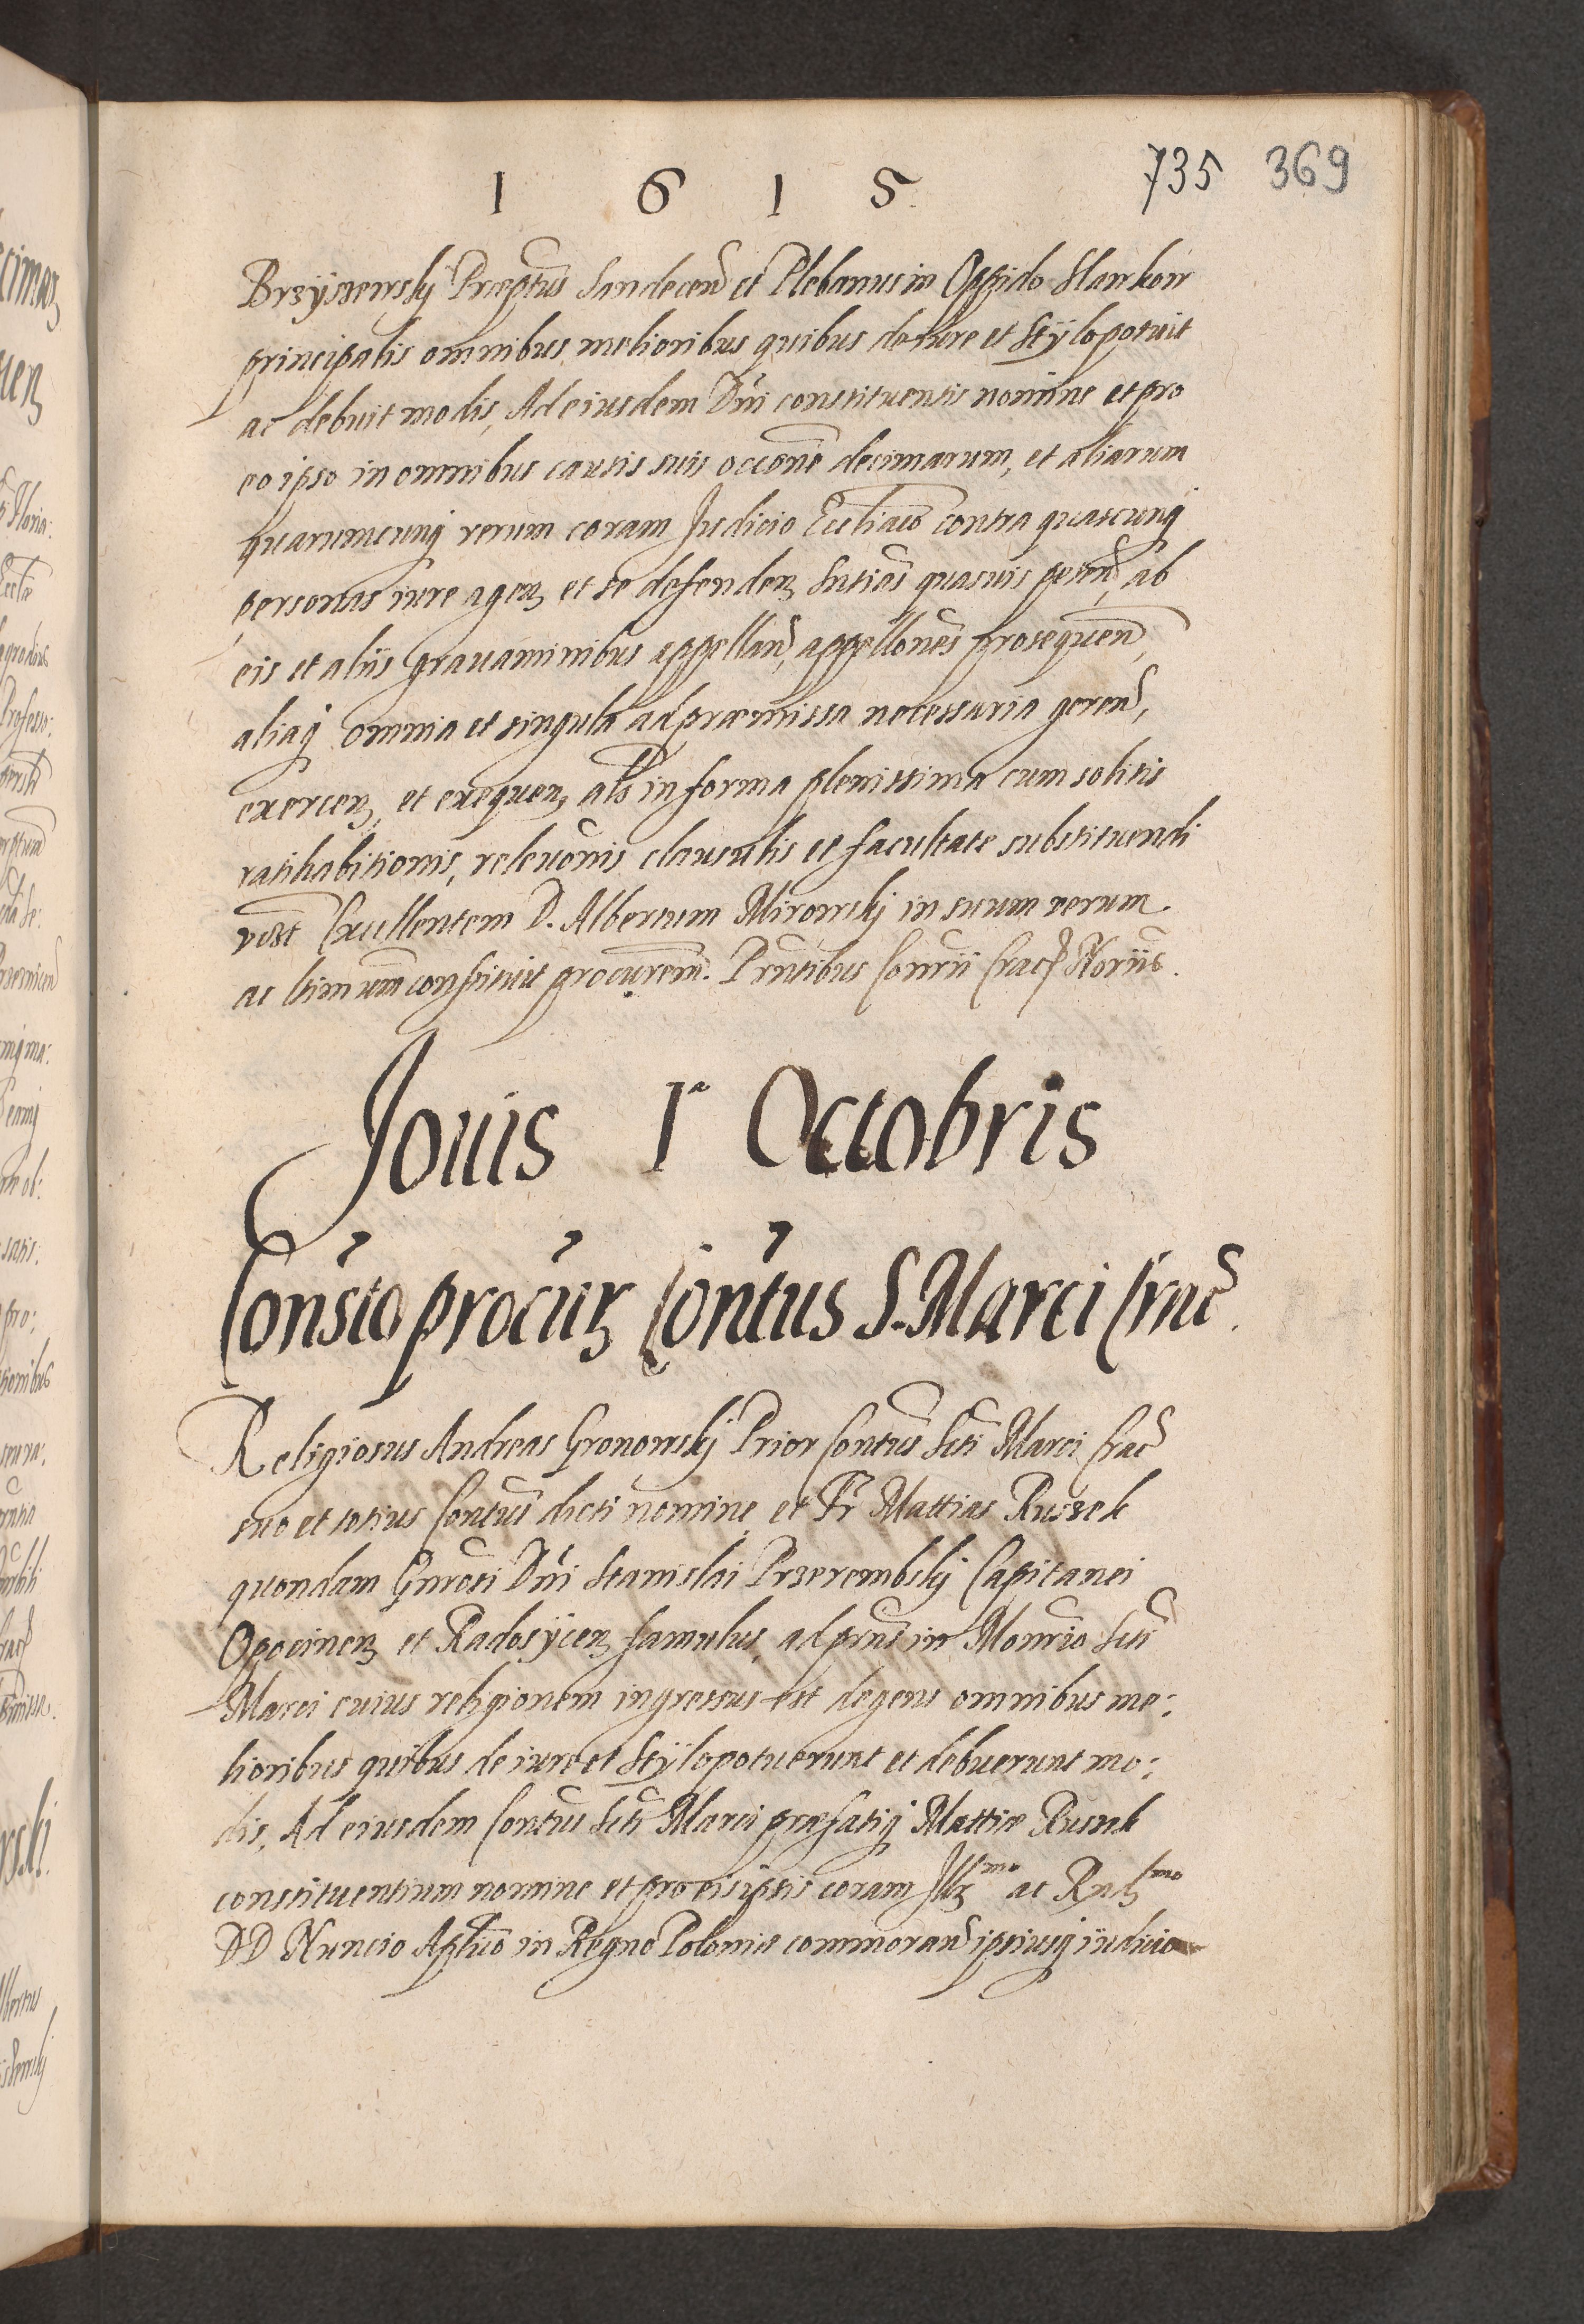 1 6 1 5
735 369
Brzÿszewskÿ Præptus Sandecen et Plebanus in Oppido Slawkow
principalis omnibus melioribus quibus de iure et Stÿlo potuit
ac debuit modis, Ad eiusdem Dni constituentis nomine et pro
eo ipso in omnibus causis suis occone decimarum, et aliarum
quarumcunq rerum coram Judicio Eccliaco contra quascunq
personas iure agen et se defenden Sntias quasuis peten, ab
eis et aliis grauaminibus appellan, appellones prosequen,
aliaq omnia et singula ad præmissa necessaria geren,
exercen, et exequen, als in forma plenissima cum solitis
ratihabitionis, releuonis clausulis et facultate substituendi
Excellentem D. Albertum Mirowskj in suum verum
ac ltimum constituit procurem. Prntibus Consrii Crac Noriis.
Jouis 1ª Octobris
Consto procur Contus S. Marci Crac.
Religiosus Andreas Gronowskj Prior Contus Scti Marci Crac
suo et totius Contus dicti nomine, et Fr Mattias Ruszek
quondam Gnrosi Dni Stanislai Przerembskj Capitanei
Opocinen et Radosÿcen famulus, ad prns in Monrio Scti
Marci cuius religionem ingressus est degens omnibus me:
lioribus quibus de iure et Stÿlo potuerunt et debuerunt mo:
dis, Ad eiusdem Contus Scti Marci præfatiq Mattiæ Rusek
constituentium nomine et pro eis ipsis coram Illmo ac Rndmo
DD Nuncio Aplico in Regno Poloniæ commoran ipsiusq iudicio